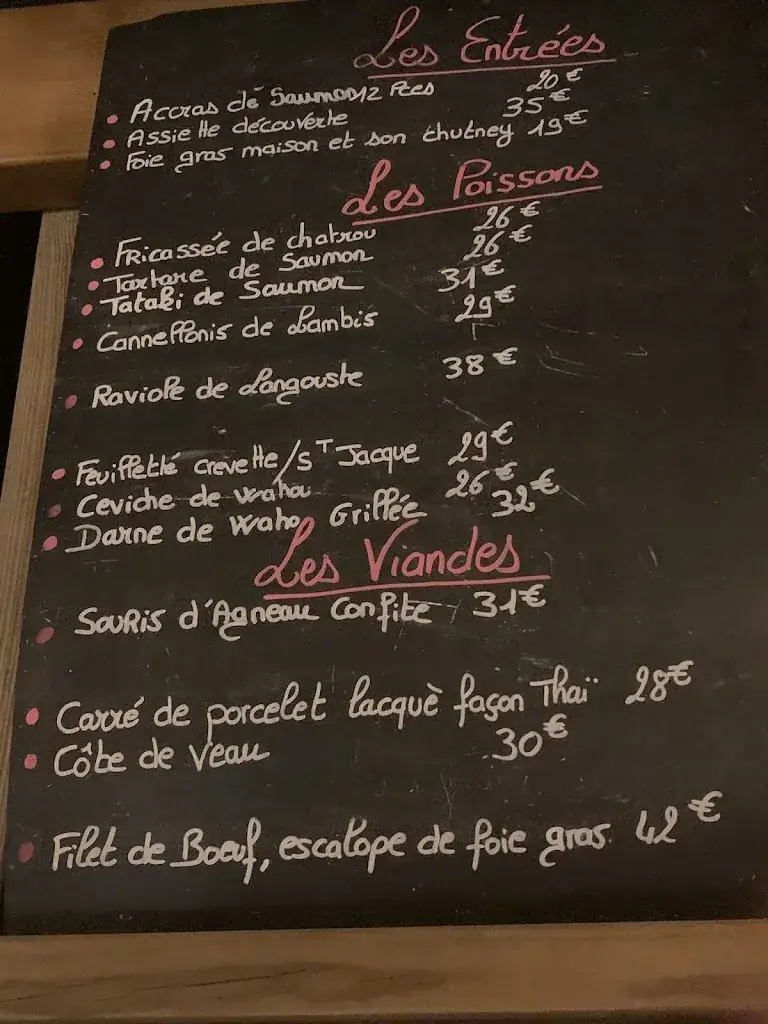 Les Entrées
• Accras de Saumon 12 Pces 20€
• Assiette découverte 35€
• Foie gras maison et son chutney 19€
Les Poissons
• Fricassée de chatrou 26€
• Tartare de Saumon 26€
• Tataki de Saumon 31€
• Cannellonis de Lambis 29€
• Raviole de Langouste 38€
• Feuilletté crevette/ST Jacque 29€
• Ceviche de waho 26€
• Darne de waho Grillée 32€
Les Viandes
• Souris d'Agneau Confite 31€
• Carré de porcelet lacquè façon Thaï 28€
• Côte de Veau 30€
• Filet de Boeuf, escalope de foie gras 42€